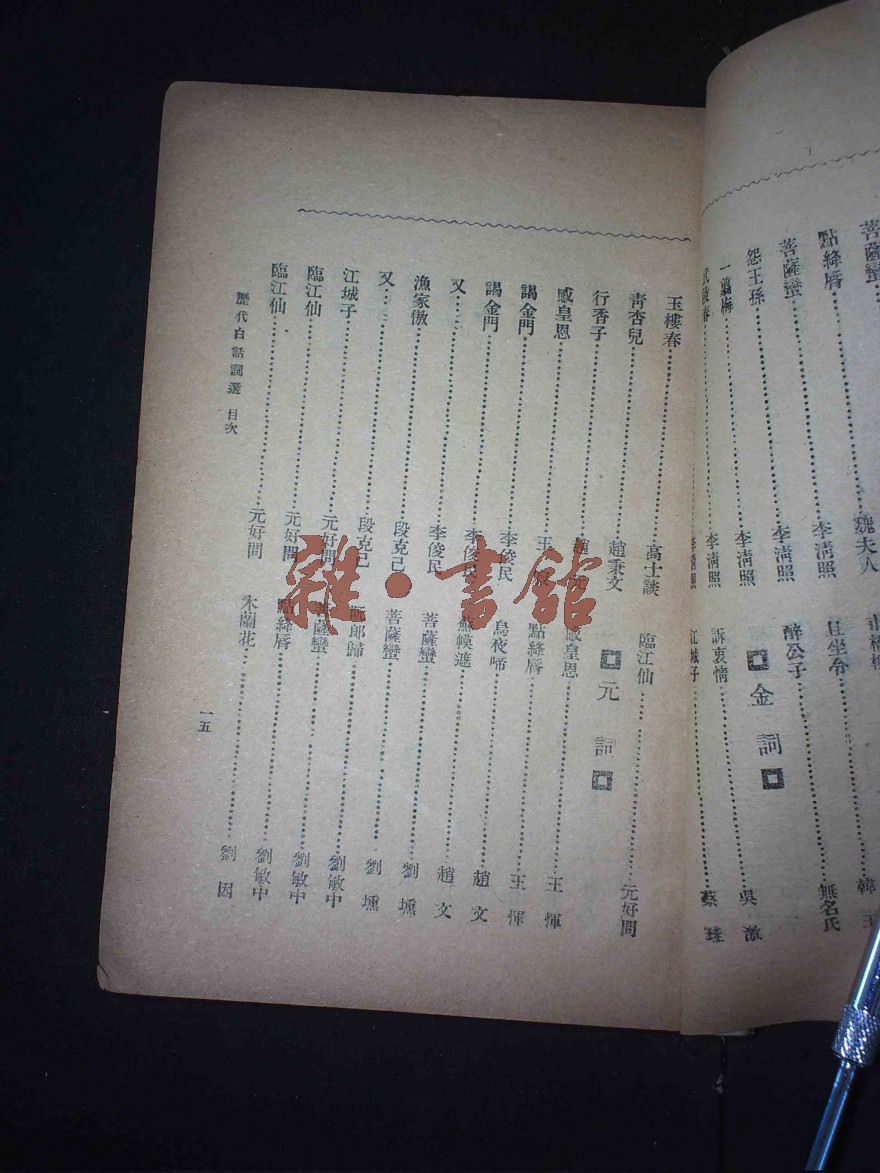 菩薩蠻……魏夫人
點絳唇……李清照
菩薩蠻……李清照
怨王孫……李清照
一翦梅……李清照
武陵春……李清照
且坐令……韓
醉公子……無名氏
金詞
訴衷情……吳激
江城子……蔡珪
玉樓春……高士談
青杏兒……趙秉文
行香子……趙
感皇恩……王
謁金門……李俊民
謁金門……李俊民
又……李俊民
漁家傲……段克己
又……段克己
江城子……元好問
臨江仙……元好問
臨江仙……元好問
臨江仙……元好問
元詞
感皇恩……王惲
點絳唇……王惲
烏夜啼……趙文
蘇幙遮……趙文
菩薩蠻……劉壎
菩薩蠻……劉壎
阮郎歸……劉敏中
菩薩蠻……劉敏中
點絳唇……劉敏中
木蘭花……劉因
歷代白話詞選 目次
一五
雜·書館